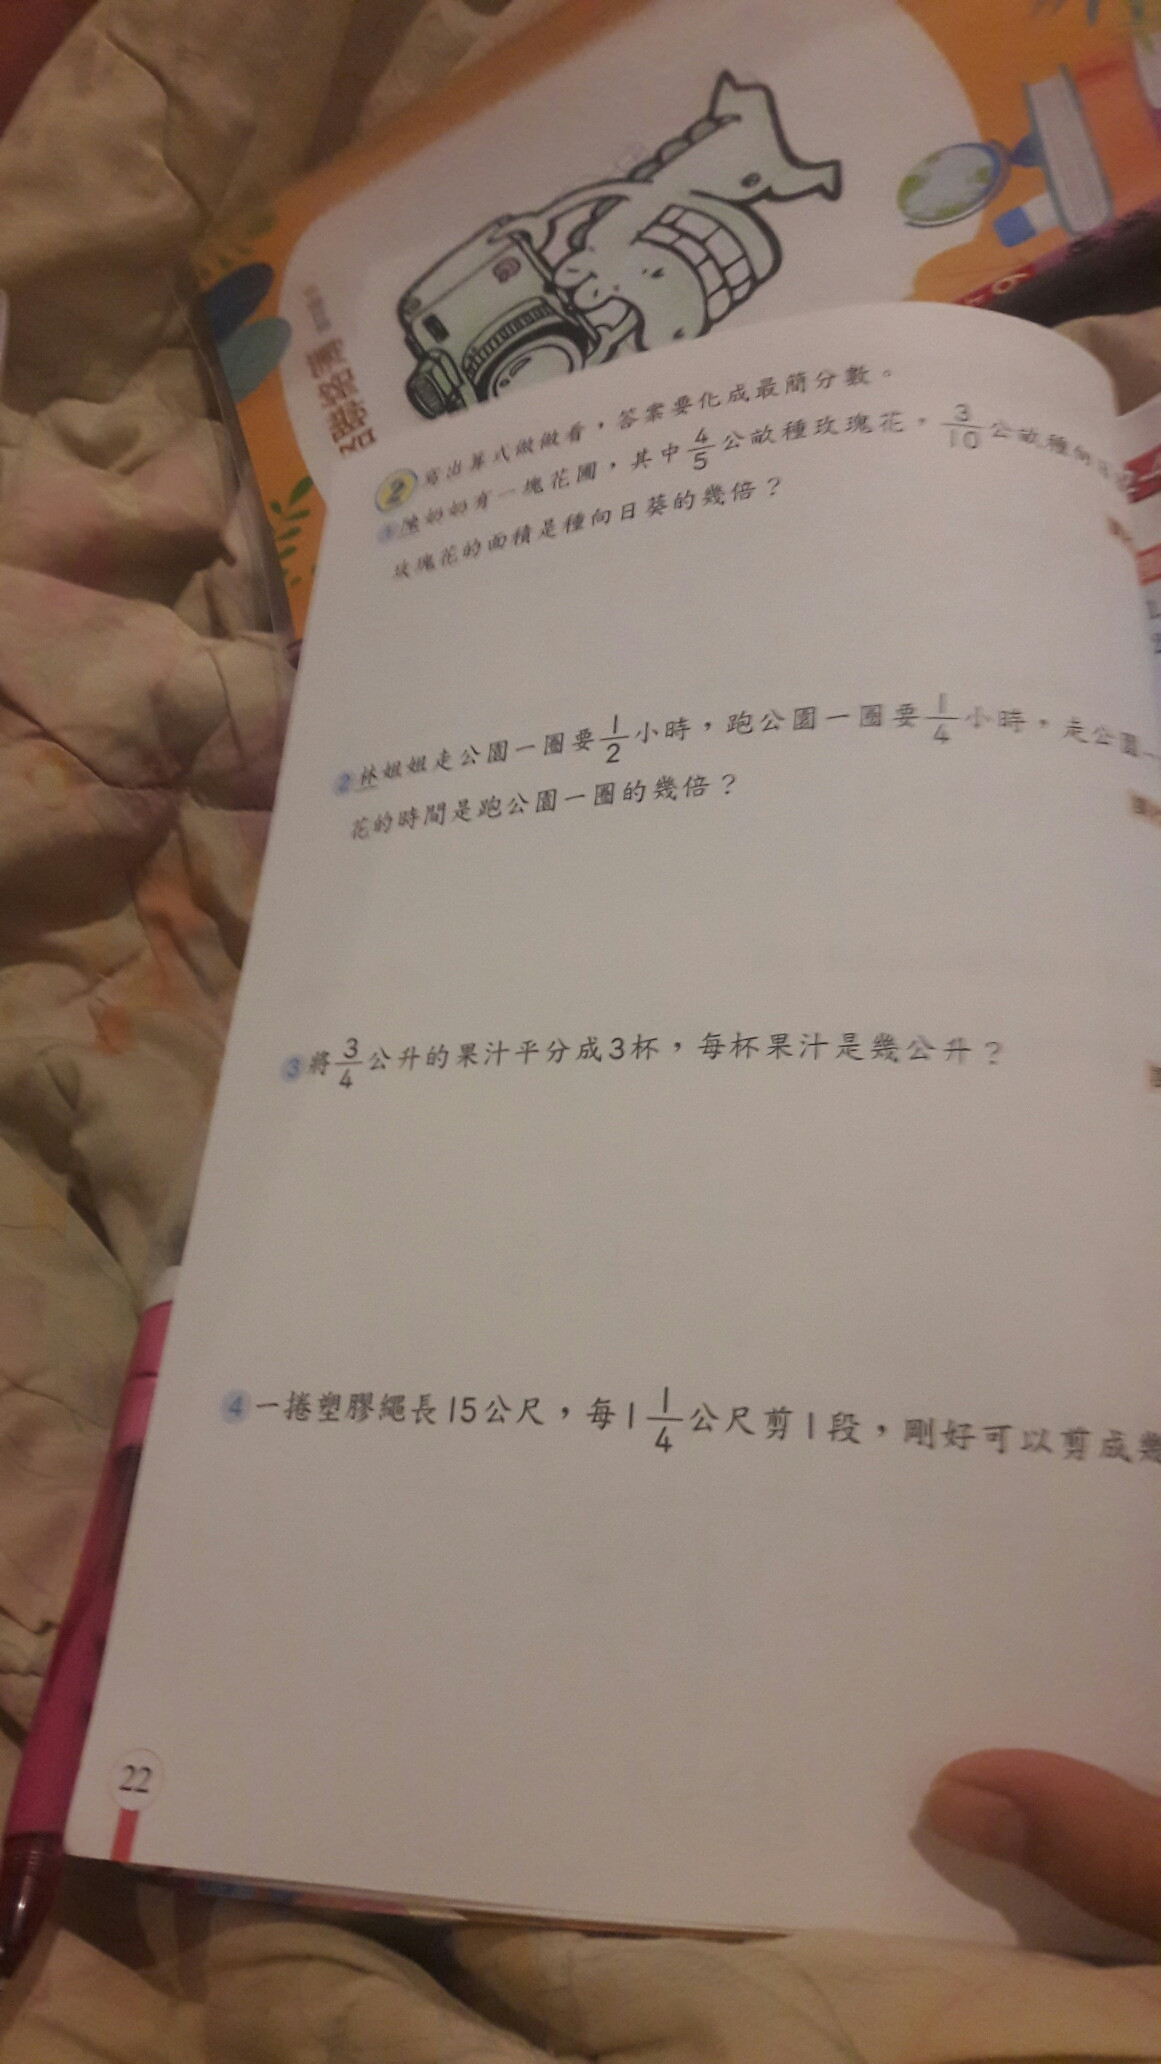 聯絡簿
2 寫出算式做做看，答案要化成最簡分數。
1 陳奶奶有一塊花圃，其中 4/5 公畝種玫瑰花，3/10 公畝種向日
玫瑰花的面積是種向日葵的幾倍？
2 林姐姐走公園一圈要 1/2 小時，跑公園一圈要 1/4 小時，走公園一
花的時間是跑公園一圈的幾倍？
3 將 3/4 公升的果汁平分成3杯，每杯果汁是幾公升？
4 一捲塑膠繩長15公尺，每1 1/4 公尺剪1段，剛好可以剪成幾
22